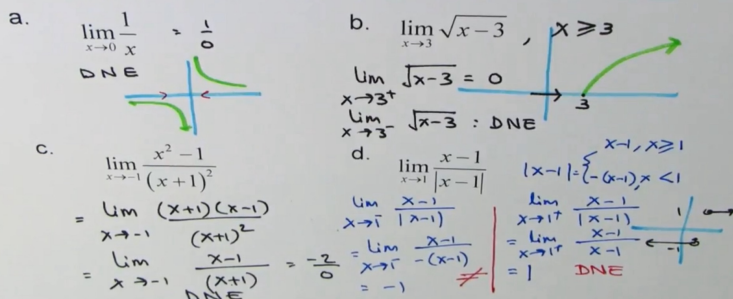 a.
lim x→0 1/x = 1/0
DNE
b.
lim x→3 √(x−3) , x ≥ 3
lim x→3⁺ √(x−3) = 0
lim x→3⁻ √(x−3) : DNE
3
c.
lim x→−1 (x² − 1)/(x + 1)²
= lim x→−1 (x+1)(x−1)/(x+1)²
= lim x→−1 (x−1)/(x+1) = −2/0
DNE
d.
lim x→1 (x − 1)/|x − 1|
|x−1| = { x−1, x ≥ 1
−(x−1), x < 1
lim x→1⁻ (x−1)/|x−1|
= lim x→1⁻ (x−1)/−(x−1)
= −1
≠
lim x→1⁺ (x−1)/|x−1|
= lim x→1⁺ (x−1)/(x−1)
= 1 DNE
1
−1